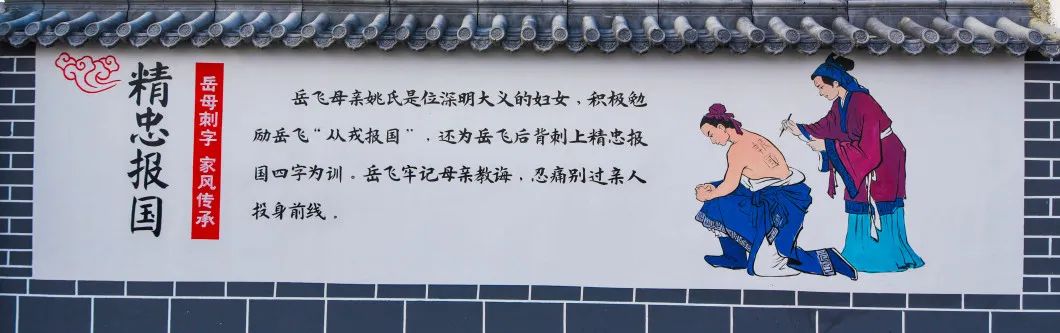 精忠报国
岳母刺字 家风传承
岳飞母亲姚氏是位深明大义的妇女，积极勉
励岳飞“从戎报国”，还为岳飞后背刺上精忠报
国四字为训。岳飞牢记母亲教诲，忍痛别过亲人
投身前线。